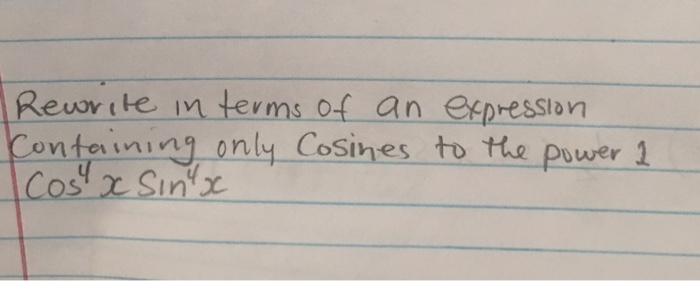 Rewrite in terms of an expression
Containing only Cosines to the power 1
Cos⁴ x Sin⁴x